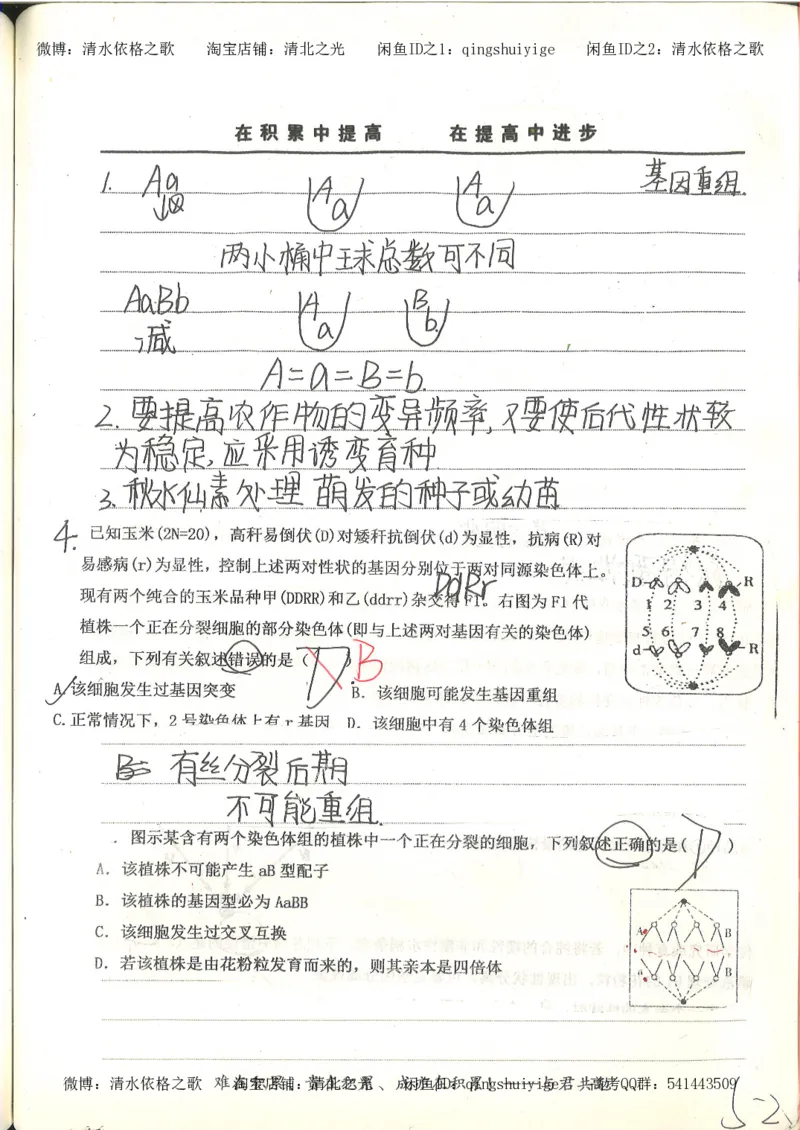 微博：清水依格之歌 淘宝店铺：清北之光 闲鱼ID之1：qingshuiyige 闲鱼ID之2：清水依格之歌
在积累中提高 在提高中进步
1. Aa A a A a 基因重组.
两小桶中球总数可不同
AaBb A a B b
减
A=a=B=b.
2. 要提高农作物的变异频率,又要使后代性状较
为稳定,应采用诱变育种
3. 秋水仙素处理 萌发的种子或幼苗
4. 已知玉米(2N=20)，高秆易倒伏(D)对矮秆抗倒伏(d)为显性，抗病(R)对
易感病(r)为显性，控制上述两对性状的基因分别位于两对同源染色体上。
DdRr
现有两个纯合的玉米品种甲(DDRR)和乙(ddrr)杂交得F1。右图为F1代
植株一个正在分裂细胞的部分染色体(即与上述两对基因有关的染色体)
组成，下列有关叙述错误的是（D）B
D R
1 2 3 4
5 6 7 8
d R
A.该细胞发生过基因突变 B. 该细胞可能发生基因重组
C.正常情况下，2号染色体上有r基因 D. 该细胞中有4个染色体组
B: 有丝分裂后期
不可能重组.
图示某含有两个染色体组的植株中一个正在分裂的细胞，下列叙述正确的是(D)
A. 该植株不可能产生aB型配子
B. 该植株的基因型必为AaBB
C. 该细胞发生过交叉互换
D. 若该植株是由花粉粒发育而来的，则其亲本是四倍体
A B
a B
微博：清水依格之歌 淘宝店铺：清北之光 闲鱼ID之1：qingshuiyige 高考QQ群：541443509
5-2